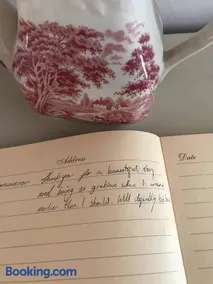 Address
Date
Thank you for a beautiful stay
and being so gracious when I came
earlier than I should. Will definitely be
Booking.com